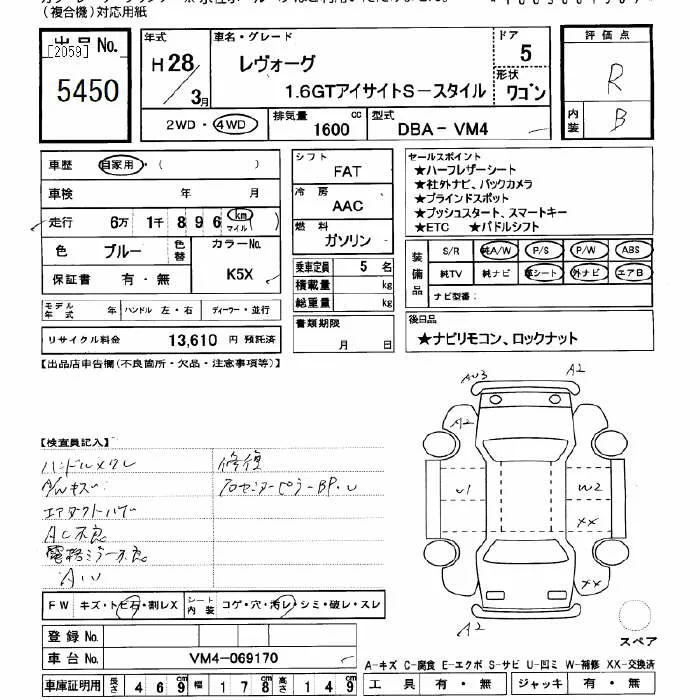 (複合機)対応用紙
出品No.
[2059]
5450
年式
H28/3月
車名・グレード
レヴォーグ
1.6GTアイサイトS-スタイル
ドア
5
形状
ワゴン
評価点
R
内装
B
2WD・4WD
排気量 1600 cc
型式 DBA-VM4
車歴 自家用・( )
車検 年 月
走行 6万 1千 8 9 6 km マイル
色 ブルー 色替
カラーNo. K5X
保証書 有・無
モデル年式 年 ハンドル 左・右 ディーラー・並行
リサイクル料金 13,610 円 預託済
シフト
FAT
冷房
AAC
燃料
ガソリン
乗車定員 5 名
積載量 kg
総重量 kg
書類期限
月 日
セールスポイント
★ハーフレザーシート
★社外ナビ、バックカメラ
★ブラインドスポット
★プッシュスタート、スマートキー
★ETC ★パドルシフト
装備品
S/R 純A/W P/S P/W ABS
純TV 純ナビ 革シート 外ナビ エアB
ナビ型番:
後日品
★ナビリモコン、ロックナット
【出品店申告欄(不良箇所・欠品・注意事項等)】
【検査員記入】
ハンドルスレ
A/Wキズ
エアダクトハズレ
AC不良
電格ミラー不良
AU
修復
BP.U
AU3
A2
A2
A2
U1
W2
XX
XX
A2
FW キズ・トビ石・割レX
シート内装 コゲ・穴・汚レ・シミ・破レ・スレ
登録No.
車台No. VM4-069170
スペア
A-キズ C-腐食 E-エクボ S-サビ U-凹ミ W-補修 XX-交換済
車庫証明用 長さ 4 6 9 cm 幅 1 7 8 cm 高さ 1 4 9 cm
工具 有・無 ジャッキ 有・無